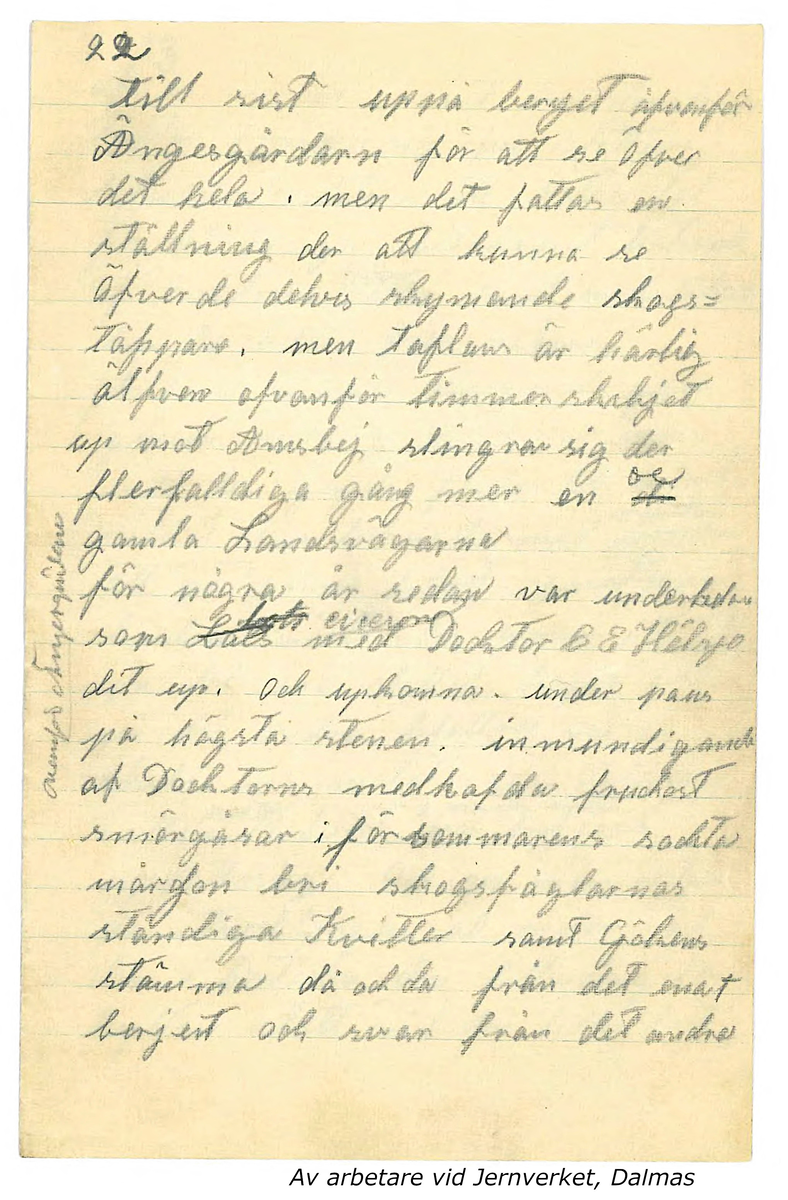 22
till sist uppå berget åfvanför
Ängesgårdarn för att se Öfver
det hela. men det fattas en
ställning der att kunna se
Öfver de delvis skymande skogs=
täppare. men taflan är härlig
älfven ofvanför timmer skiljet
up mot Amsbej slingrar sig der
flerfalldiga gång mer en de
gamla Landsvägarna
för några år sedan var undertedn
som med Docktor E E
dit up. och upkomna. under paus
på högsta stenen. inmundigande
af Docktorns medhafda fruckost
smörgåsar i för sommarens sackta
mårgon bri skogsfåglarnas
ständiga Kvitter samt Gökens
stämma då och då från det enat
berjet och svar från det andra
Av arbetare vid Jernverket, Dalmas